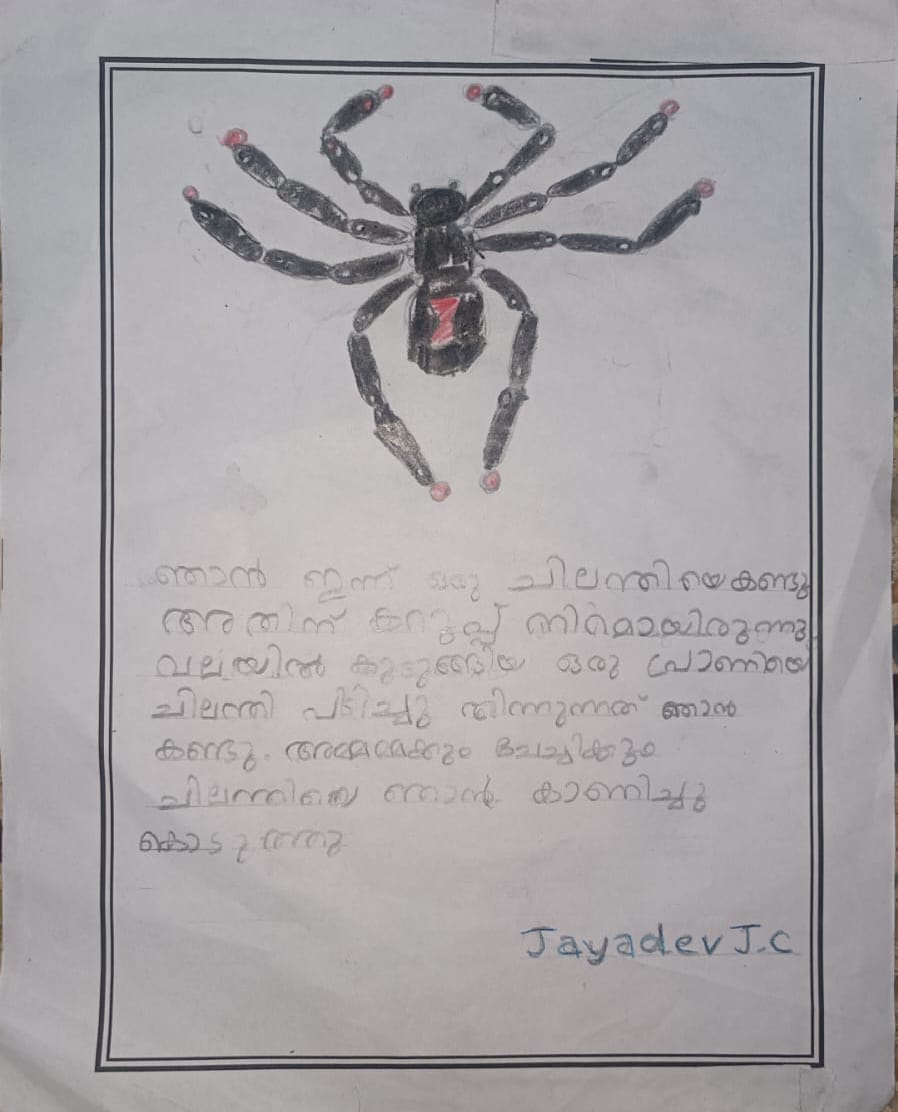 ഞാൻ ഇന്ന് ഒരു ചിലന്തിയെകണ്ടു
അതിന് കറുപ്പ് നിറമായിരുന്നു
വലയിൽ കുടുങ്ങിയ ഒരു പ്രാണിയെ
ചിലന്തി പിടിച്ചു തിന്നുന്നത് ഞാൻ
കണ്ടു. അമ്മക്കും ചേച്ചിക്കും
ചിലന്തിയെ ഞാൻ കാണിച്ചു
കൊടുത്തു
Jayadev J.C